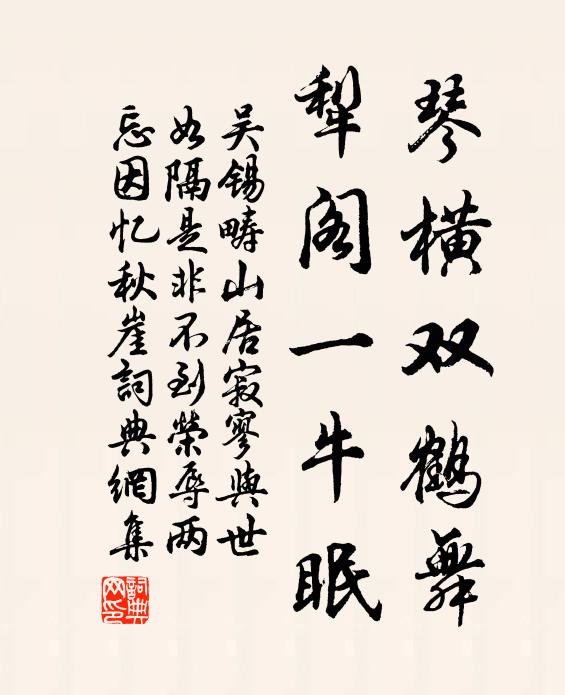 琴横双鹤舞
犁阁一牛眠
吴锡畴山居寂寥与世
如隔是非不到荣辱两
忘因忆秋崖词典网集
詞典
网印